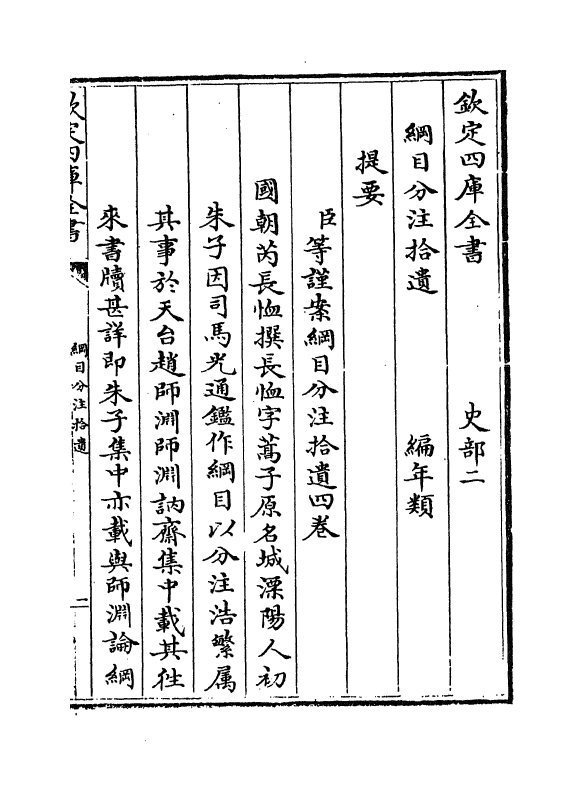 欽定四庫全書 史部二
綱目分注拾遺 編年類
提要
臣等謹案綱目分注拾遺四卷
國朝芮長恤撰長恤字蒿子原名城溧陽人初
朱子因司馬光通鑑作綱目以分注浩繁属
其事於天台趙師淵師淵訥齋集中載其往
來書牘甚詳即朱子集中亦載與師淵論綱
欽定四庫全書
綱目分注拾遺